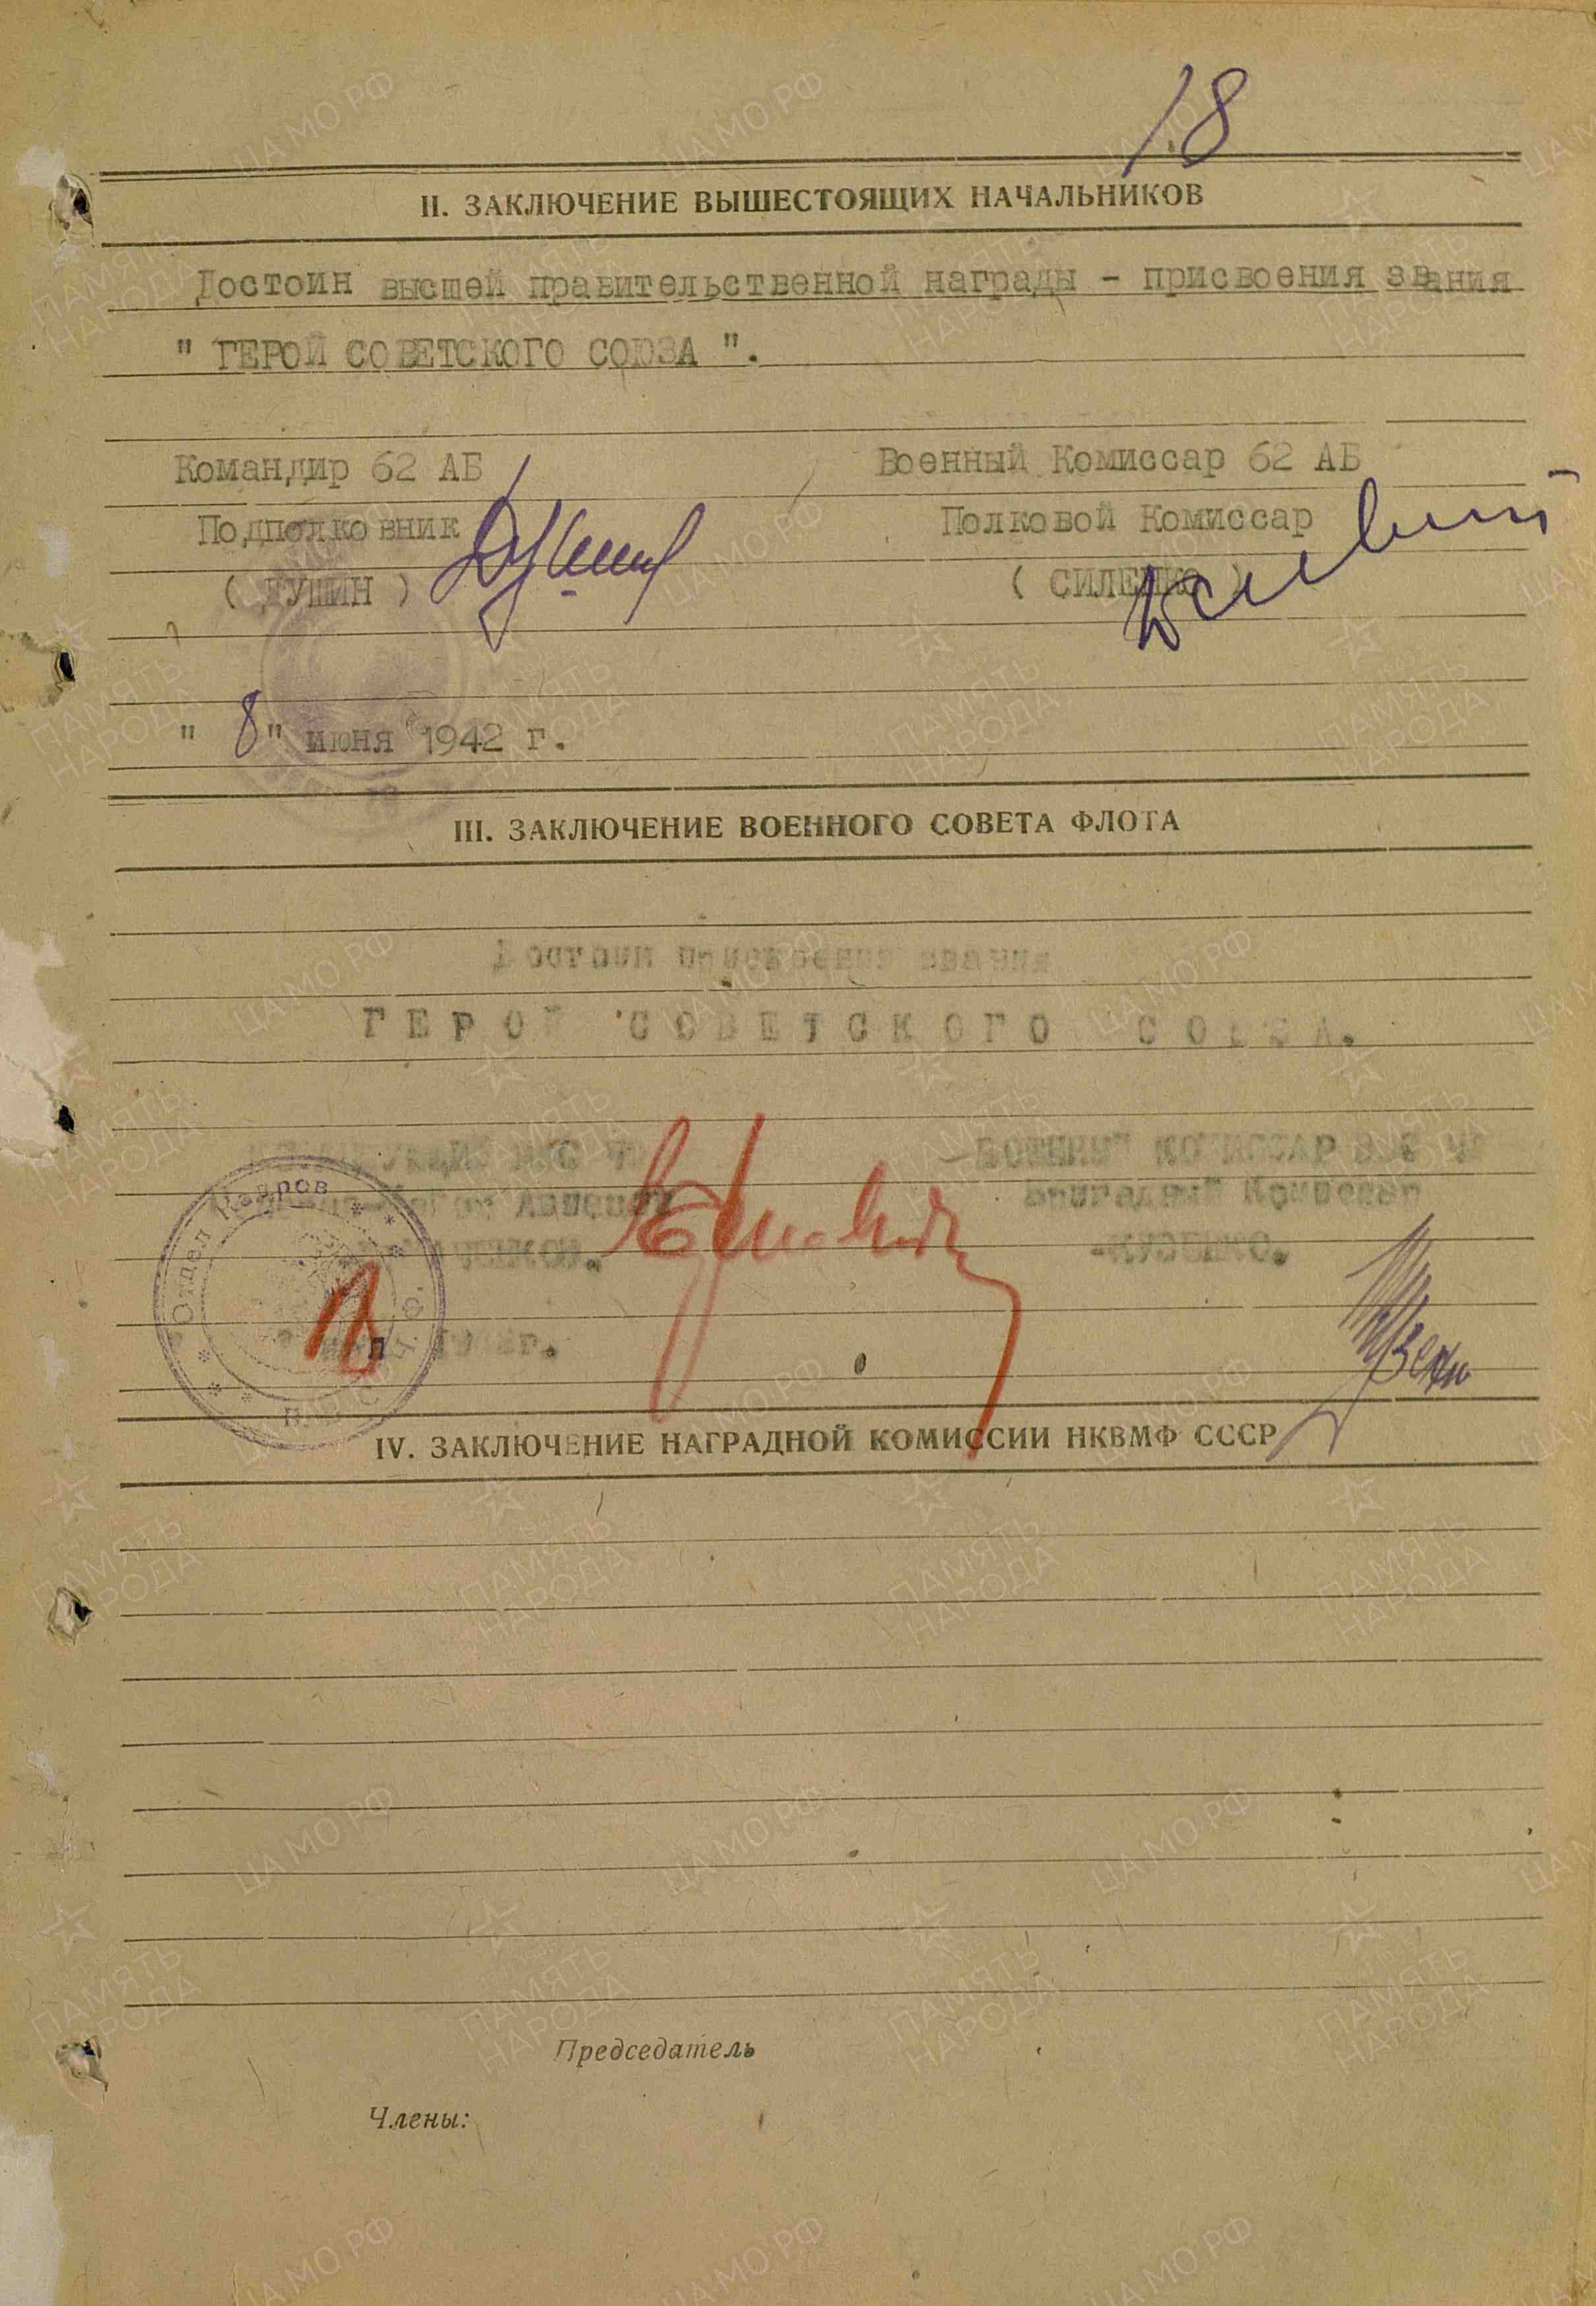 18
II. ЗАКЛЮЧЕНИЕ ВЫШЕСТОЯЩИХ НАЧАЛЬНИКОВ
Достоин высшей правительственной награды - присвоения звания
" ГЕРОЙ СОВЕТСКОГО СОЮЗА ".
Командир 62 АБ Военный Комиссар 62 АБ
Подполковник Полковой Комиссар
( ДУШИН ) ( СИЛЕНКО )
" 8 " июня 1942 г.
III. ЗАКЛЮЧЕНИЕ ВОЕННОГО СОВЕТА ФЛОТА
Достоин присвоения звания
ГЕРОЙ СОВЕТСКОГО СОЮЗА.
ВВС ЧФ Военный Комиссар ВВС ЧФ
Авиации Бригадный Комиссар
-КУЗЕНКО.
Отдел Кадров
IV. ЗАКЛЮЧЕНИЕ НАГРАДНОЙ КОМИССИИ НКВМФ СССР
Председатель
Члены: